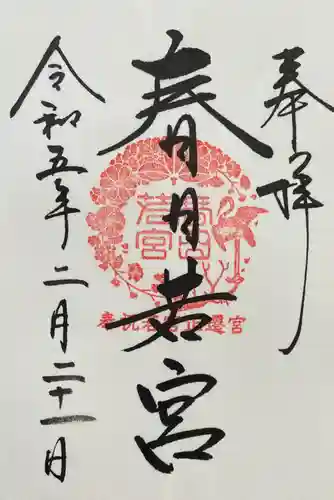 奉拝
春日若宮
令和五年二月二十一日
春日
若宮
奉祝若宮正遷宮